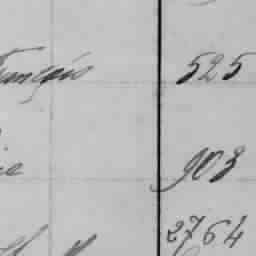 français 525
ie 903
2764